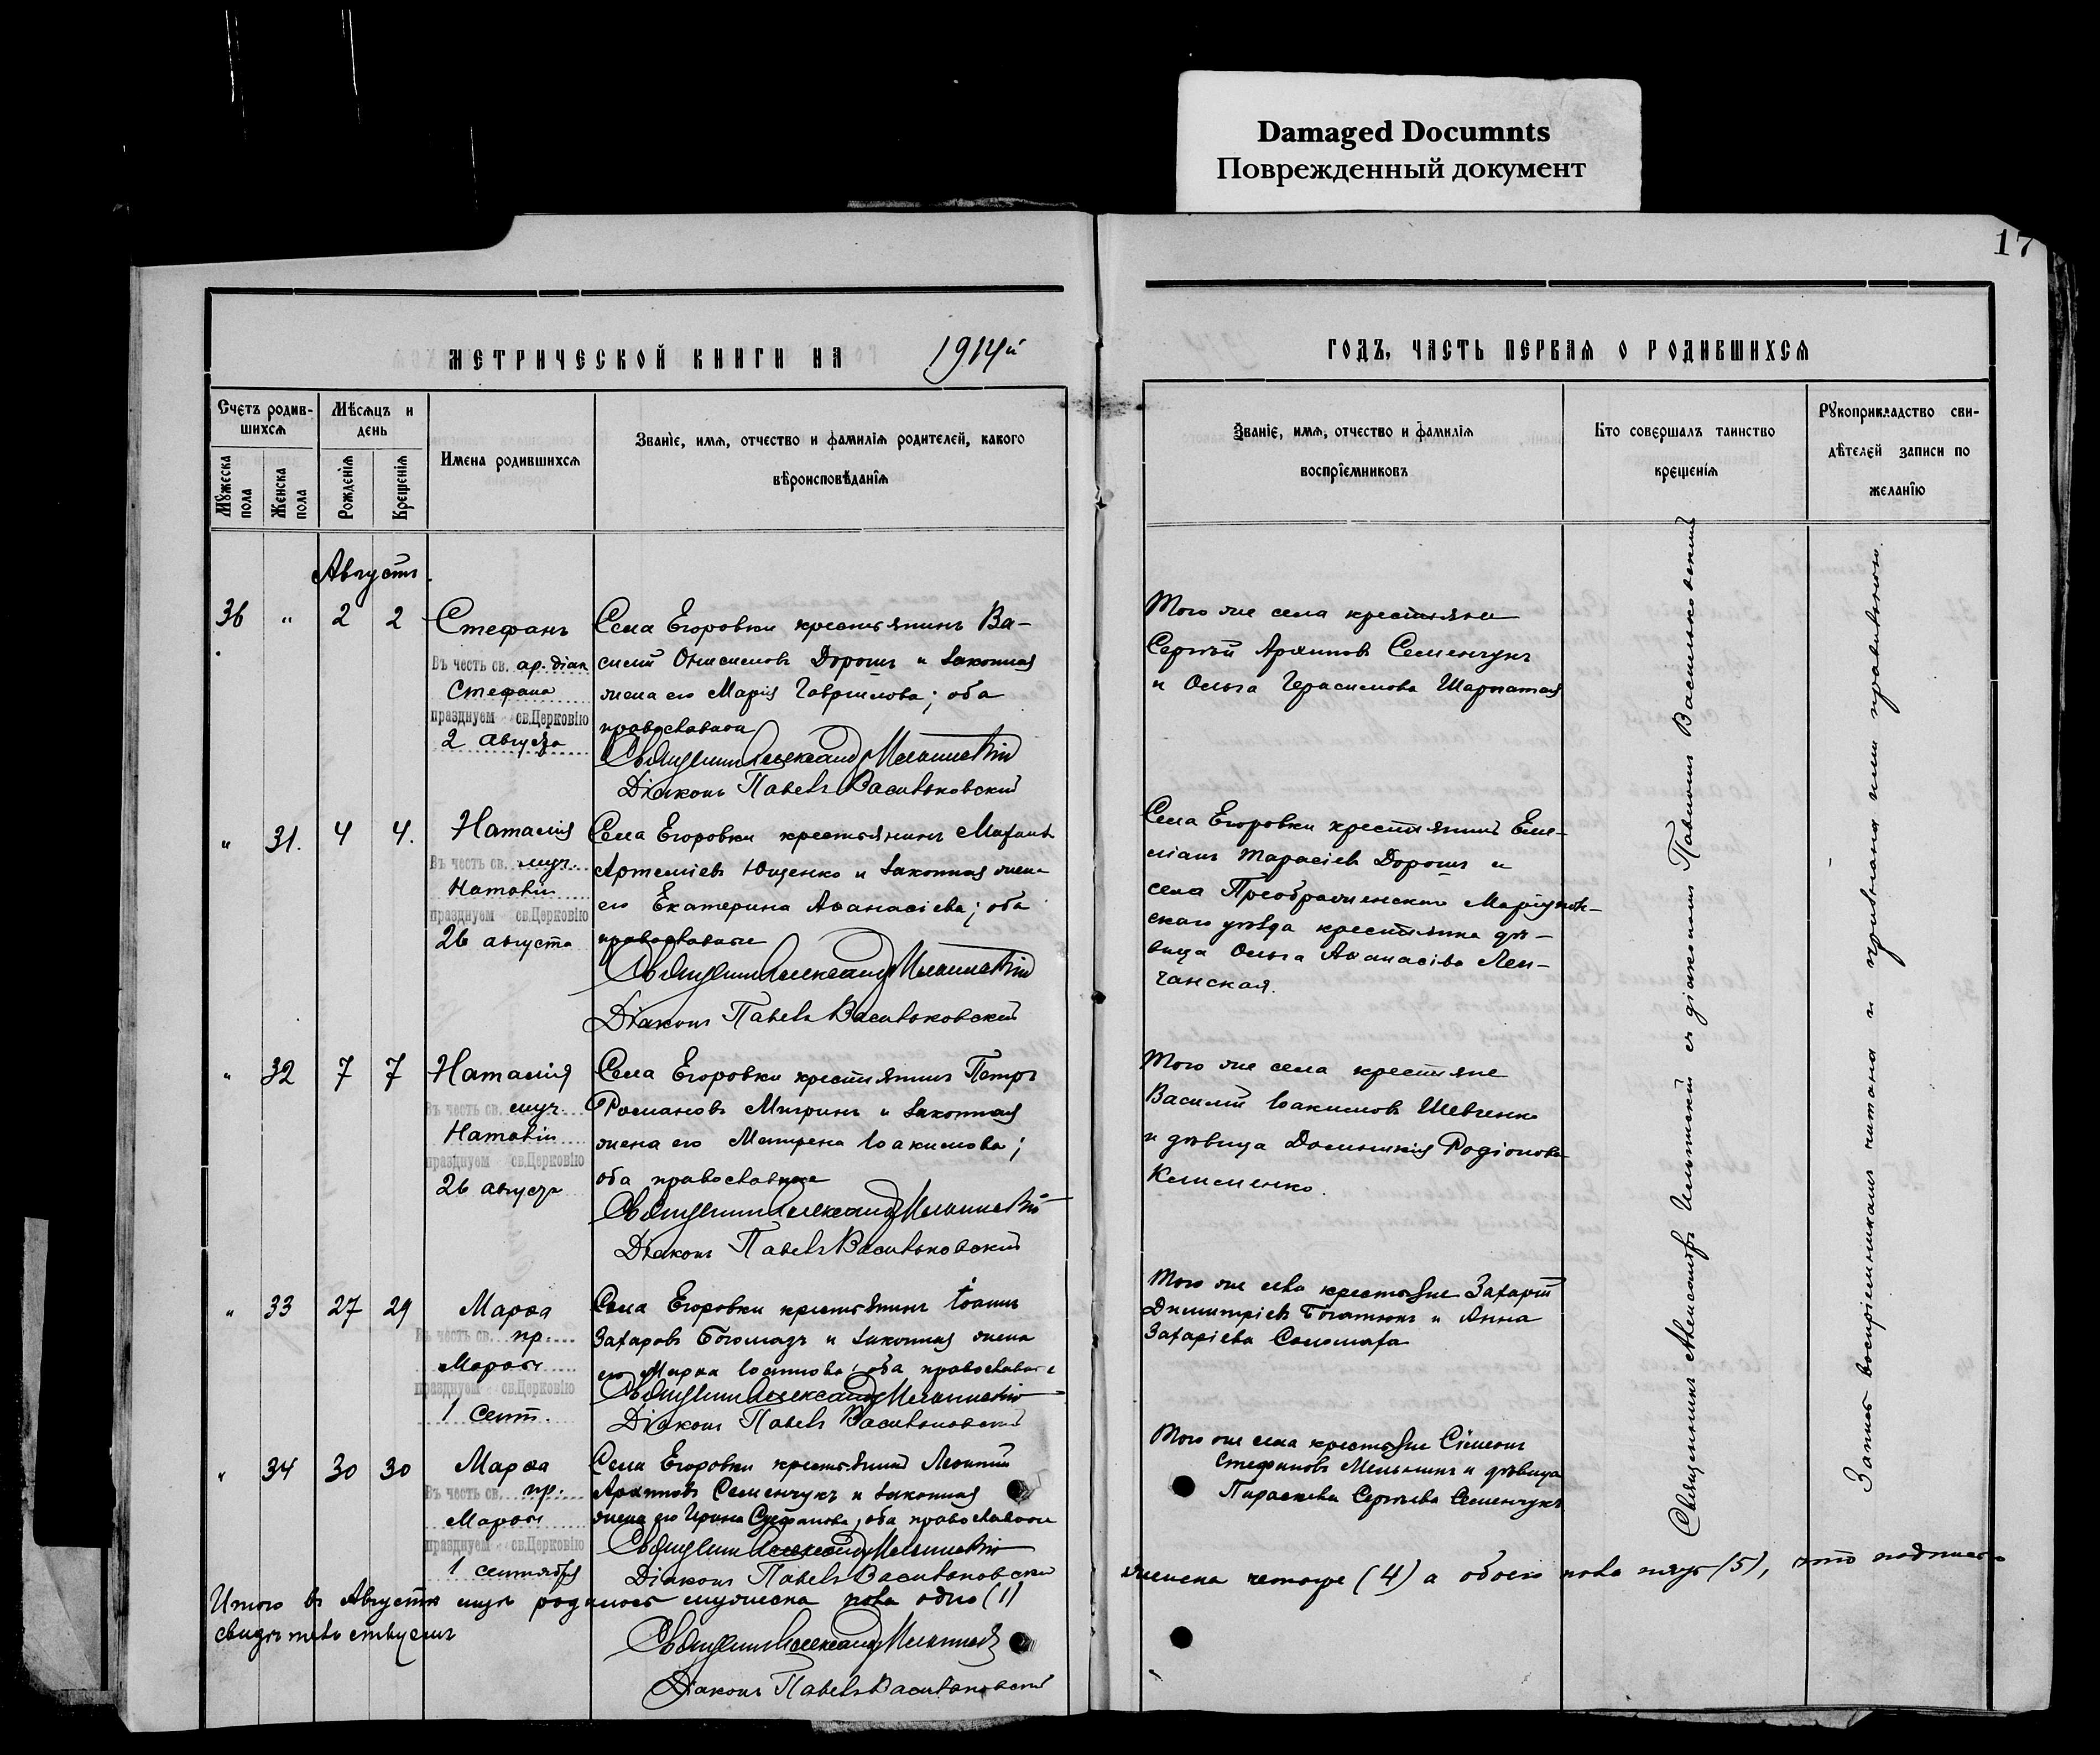 Damaged Documnts
Поврежденный документ
17
МЕТРИЧЕСКОЙ КНИГИ НА 1914й
ГОДЪ, ЧАСТЬ ПЕРВАЯ О РОДИВШИХСЯ
Счетъ родив-
шихся
Мѣсяцъ и
день
Имена родившихся
Званіе, имя, отчество и фамилія родителей, какого
вѣроисповѣданія
Мужеска
пола
Женска
пола
Рожденія
Крещенія
Званіе, имя, отчество и фамилія
воспріемниковъ
Кто совершалъ таинство
крещенія
Рукоприкладство сви-
дѣтелей записи по
желанію
Августъ.
36 " 2 2
Стефанъ
Въ честь св. ар. діак
Стефана
празднуем св.Церковію
2 августа
Села Егоровки крестьянинъ Ва-
силій Онисимовъ Дорошъ и законная
жена его Марія Гавриилова; оба
православные
Священникъ Александръ
Діаконъ Павелъ Васильковскій
Того же села крестьяне
Сергѣй Архиповъ Семенчукъ
и Ольга Герасимова
" 31. 4 4.
Наталія
Въ честь св. муч.
Наталіи
празднуем св.Церковію
26 августа
Села Егоровки крестьянинъ Михаилъ
Артеміевъ Ющенко и законная жена
его Екатерина Аѳанасіева; оба
православные
Священникъ Александръ
Діаконъ Павелъ Васильковскій
Села Егоровки крестьянинъ Еми-
ліанъ Тарасіевъ Дорошъ и
села Преображенскаго Маріуполь-
скаго уѣзда крестьянка дѣ-
вица Ольга Аѳанасіева Лен-
чанская.
" 32 7 7
Наталія
Въ честь св. муч.
Наталіи
празднуем св.Церковію
26 августа
Села Егоровки крестьянинъ Петръ
Романовъ Мигринъ и законная
жена его Матрена Іоакимова;
оба православные
Священникъ Александръ
Діаконъ Павелъ Васильковскій
Того же села крестьяне
Василій Іоакимовъ Шевченко
и дѣвица Домникія Родіонова
Клименко.
" 33 27 29
Марѳа
Въ честь св. пр.
Марѳы
празднуем св.Церковію
1 сент.
Села Егоровки крестьянинъ Іоаннъ
Захаровъ Богомазъ и законная жена
его Марѳа Іоаннова; оба православные
Священникъ Александръ
Діаконъ Павелъ Васильковскій
Того же села крестьяне Захарій
Димитріевъ Богатюкъ и Анна
Захаріева Соломаха
" 34 30 30
Марѳа
Въ честь св. пр.
Марѳы
празднуем св.Церковію
1 сентября
Села Егоровки крестьянинъ Леонтій
Архиповъ Семенчукъ и законная
жена его Ирина Стефанова, оба православные
Священникъ Александръ
Діаконъ Павелъ Васильковскій
Того же села крестьяне Сімеонъ
Стефановъ Мельникъ и дѣвица
Параскева Сергѣева Семенчукъ
Священникъ Александръ съ діакономъ Павломъ Васильковскимъ
Запись воспріемникамъ читана и признана ими правильною.
Итого въ Августѣ родилось мужеска пола одно (1)
женска четыре (4) а обоего пола пять (5), что подписью
свидѣтельствуемъ
Священникъ Александръ
Діаконъ Павелъ Васильковскій